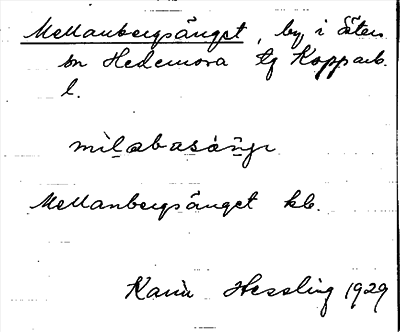 Mellanbergsänget, by i Säters
sn Hedemora tg Kopparb.
l.
mìlabasàŋı
Mellanbergsänget kb.
Karin Hessling 1929